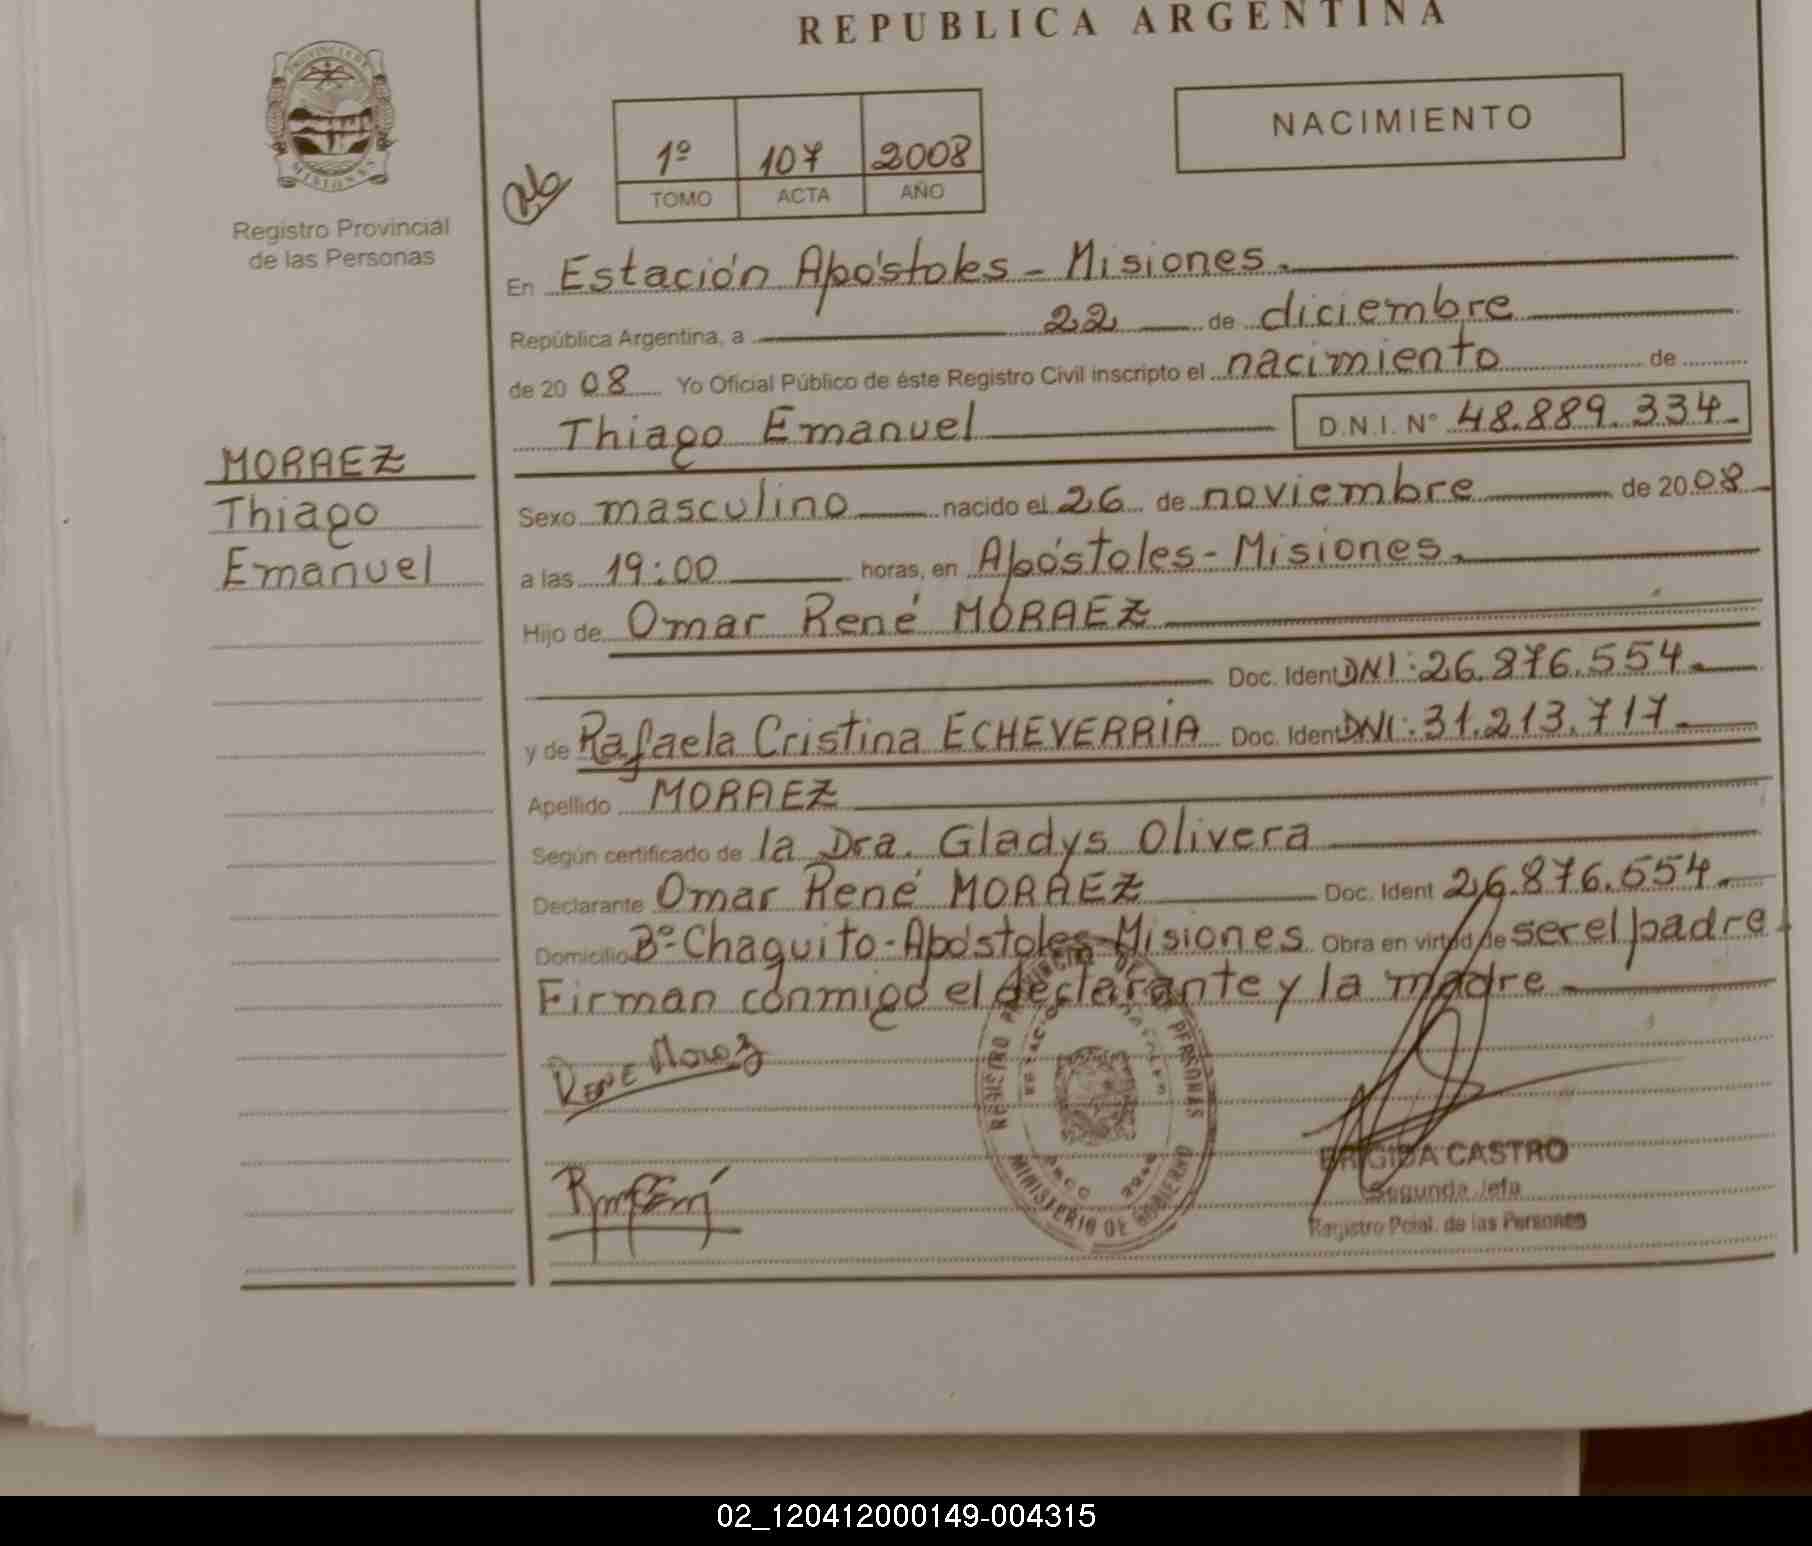 REPUBLICA ARGENTINA
PROVINCIA DE
MISIONES
Registro Provincial
de las Personas
NACIMIENTO
1º 107 2008
TOMO ACTA AÑO
En Estación Apóstoles - Misiones.
República Argentina, a 22 de diciembre
de 2008 Yo Oficial Público de éste Registro Civil inscripto el nacimiento de
Thiago Emanuel D.N.I. N° 48.889.334
MORAEZ
Thiago
Emanuel
Sexo masculino nacido el 26 de noviembre de 2008
a las 19:00 horas, en Apóstoles - Misiones.
Hijo de Omar René MORAEZ
Doc. Ident DNI: 26.876.554
y de Rafaela Cristina ECHEVERRIA Doc. Ident DNI: 31.213.717
Apellido MORAEZ
Según certificado de la Dra. Gladys Olivera
Declarante Omar René MORAEZ Doc. Ident 26.876.554
Domicilio Bº Chaquito - Apóstoles - Misiones Obra en virtud de ser el padre
Firman conmigo el declarante y la madre
RENE Moraez
REGISTRO PROVINCIAL DE LAS PERSONAS
MINISTERIO DE GOBIERNO
BRIGIDA CASTRO
Segunda Jefa
Registro Pcial. de las Personas
02_120412000149-004315